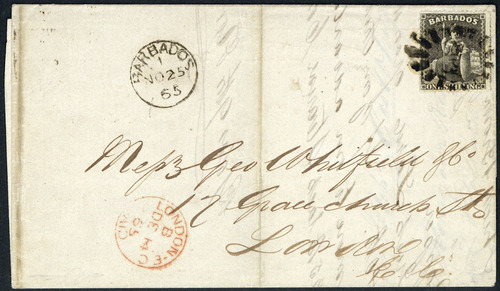 BARBADOS
ONE SHILLING
BARBADOS
1
NO 25
65
Messrs Geo Whitfield & Co
17 Gracechurch St
London
E.C.
LONDON-E.C